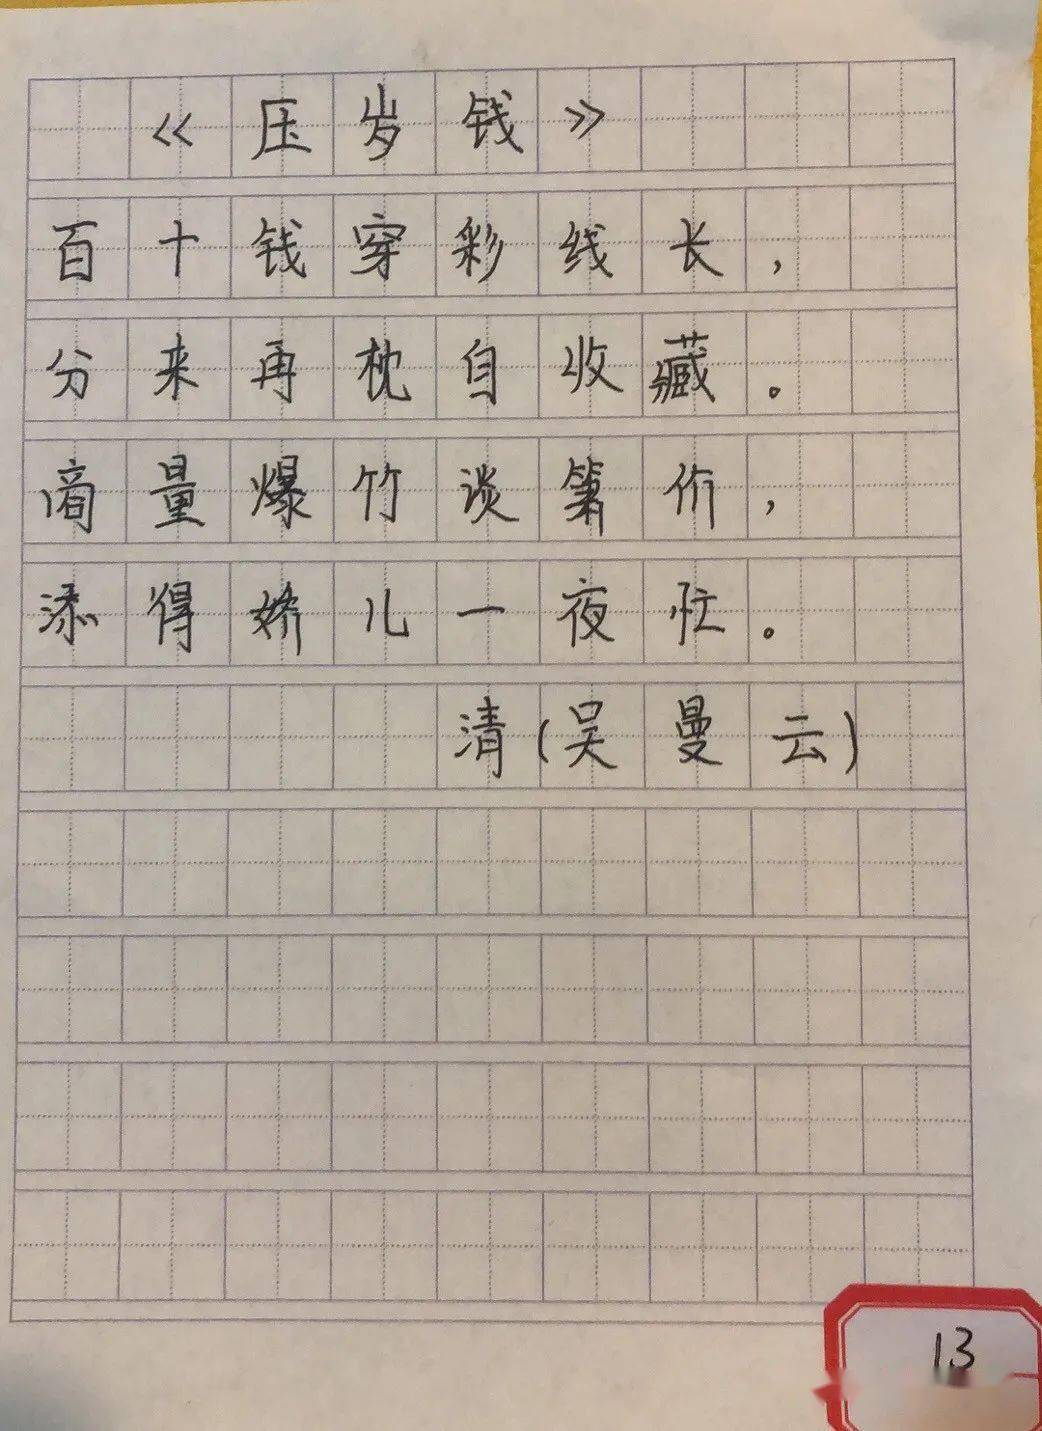 《压岁钱》
百十钱穿彩线长，
分来再枕自收藏。
商量爆竹谈箫价，
添得娇儿一夜忙。
清(吴曼云)
13